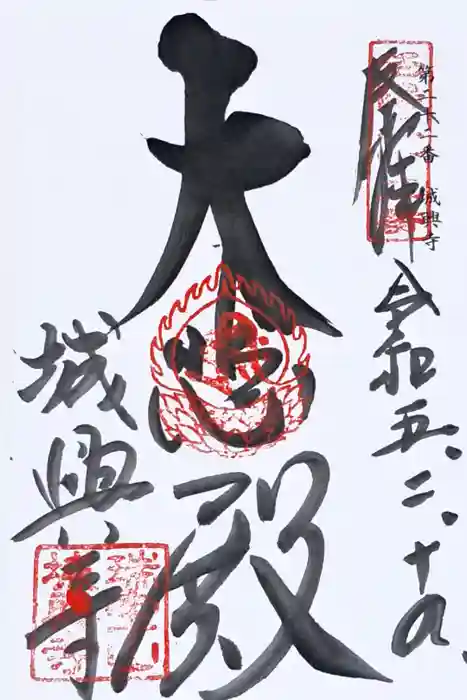 奉拝
第二十二番 城興寺
令和五、二、十九、
大悲殿
城興寺